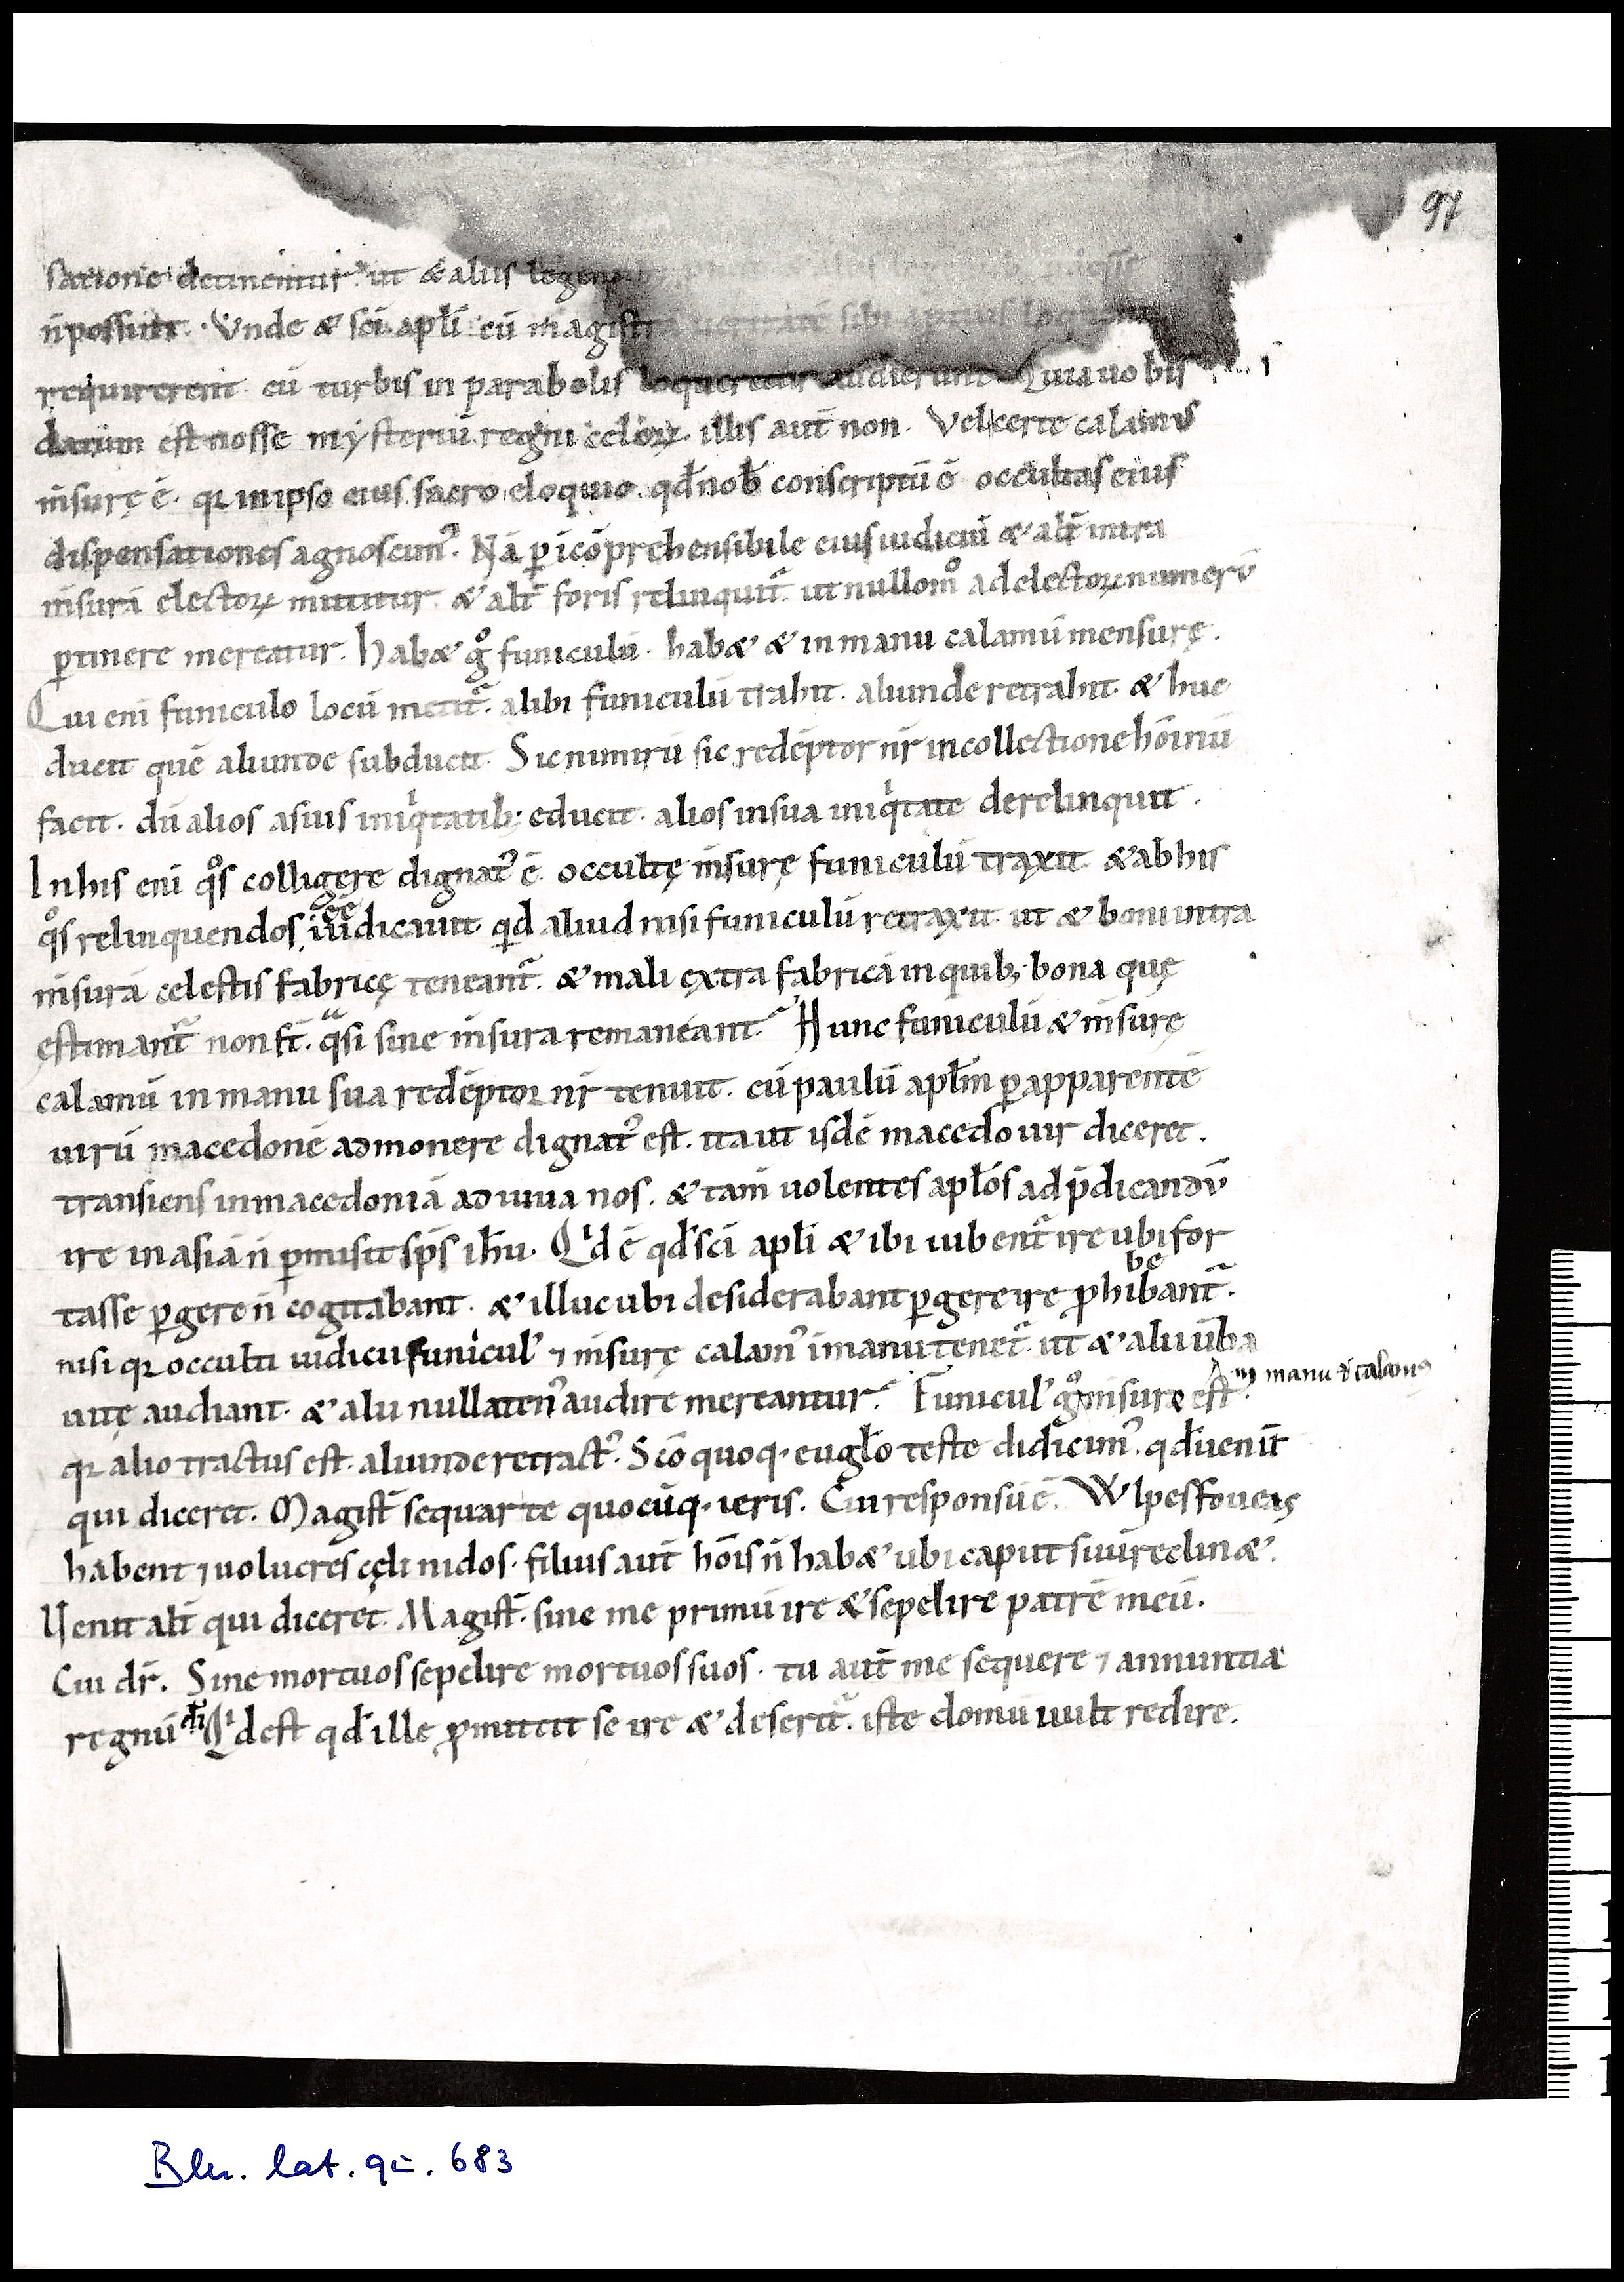 97
satione detinentur. ut & alii legem
n̄ possunt. Vnde & sc̄i apl̄i cū magistr
requirerent. cū turbis in parabolis loqueretur audierunt. Quia uobis
datum est nosse mysteriū regni celoꝝ. illis aut̄ non. Vel certe calamꝰ
m̄surę ē. qꝛ in ipso eius sacro eloquio. qd̄ nob̄ conscriptū ē occultas eius
dispensationes agnoscimꝰ. Nā ꝑ icōprehensibile eius iudiciū & alt̄ intra
m̄surā electoꝝ mittitur. & alt̄ foris relinquit᷑. ut nullom̊ ad electoꝝ numerū
ꝑtinere mereatur. Hab& g̊ funiculū. hab& & in manu calamū mensurę.
Qui eni funiculo locū metit᷑. alibi funiculū trahit. aliunde retrahit. & huc
ducit quē aliunde subducit. Sic nimirū sic redēptor nr̄ in collectione hōinū
facit. dū alios a suis iniqͥtatib; educit. alios in sua iniqͥtate derelinquit.
In his eni qͦs colligere dignatꝰ ē. occultę m̄surę funiculū traxit. & ab his
qͦs relinquendos ēē iudicauit qͥd aliud nisi funiculū retraxit. ut & boni intra
m̄surā celestis fabricę teneant᷑. & mali extra fabricā in quib; bona quę
ęstimant᷑ non st̄. qͣsi sine m̄sura remaneant. Hunc funiculū & m̄surę
calamū in manu sua redēptor nr̄ tenuit. cū paulū apl̄m ꝑ apparentē
uirū macedonē admonere dignatꝰ est. ita ut isdē macedo uir diceret.
transiens in macedoniā adiuua nos. & tam̄ uolentes apl̄os ad p̄dicandū
ire in asiā n̄ ꝑmisit sp̄s ih̄u. Qͥd ē qd̄ sc̄i apl̄i & ibi iubent᷑ ire ubi for
tasse ꝑgere n̄ cogitabant. & illuc ubi desiderabant ꝑgere ire ꝓhibebant᷑.
nisi qꝛ occulti iudicii funicul' ⁊ m̄surę calamꝰ ī manu tenet᷑. ut & alii ūba
uitę audiant. & alii nullatenꝰ audire mereantur. Funicul' g̊ m̄surę est in manu & calamꝰ
qꝛ alio tractus est. aliunde retractꝰ. Scō quoq; eugl̄o teste didicimꝰ. qd̄ uenit̄
qui diceret. Magist̄ sequar te quocūq; ieris. Cui responsū ē. Wlpes foueas
habent ⁊ uolucres cęli nidos. filius aut̄ hōis n̄ hab& ubi caput suū reclin&.
Uenit alt̄ qui diceret. Magist̄. sine me primū ire & sepelire patrē meū.
Cui dr̄. Sine mortuos sepelire mortuos suos. tu aut̄ me sequere ⁊ annuntia
regnū dī. Qͥd est qd̄ ille ꝓmittit se ire & deserit᷑. iste domū uult redire.
Bln. lat. qu. 683